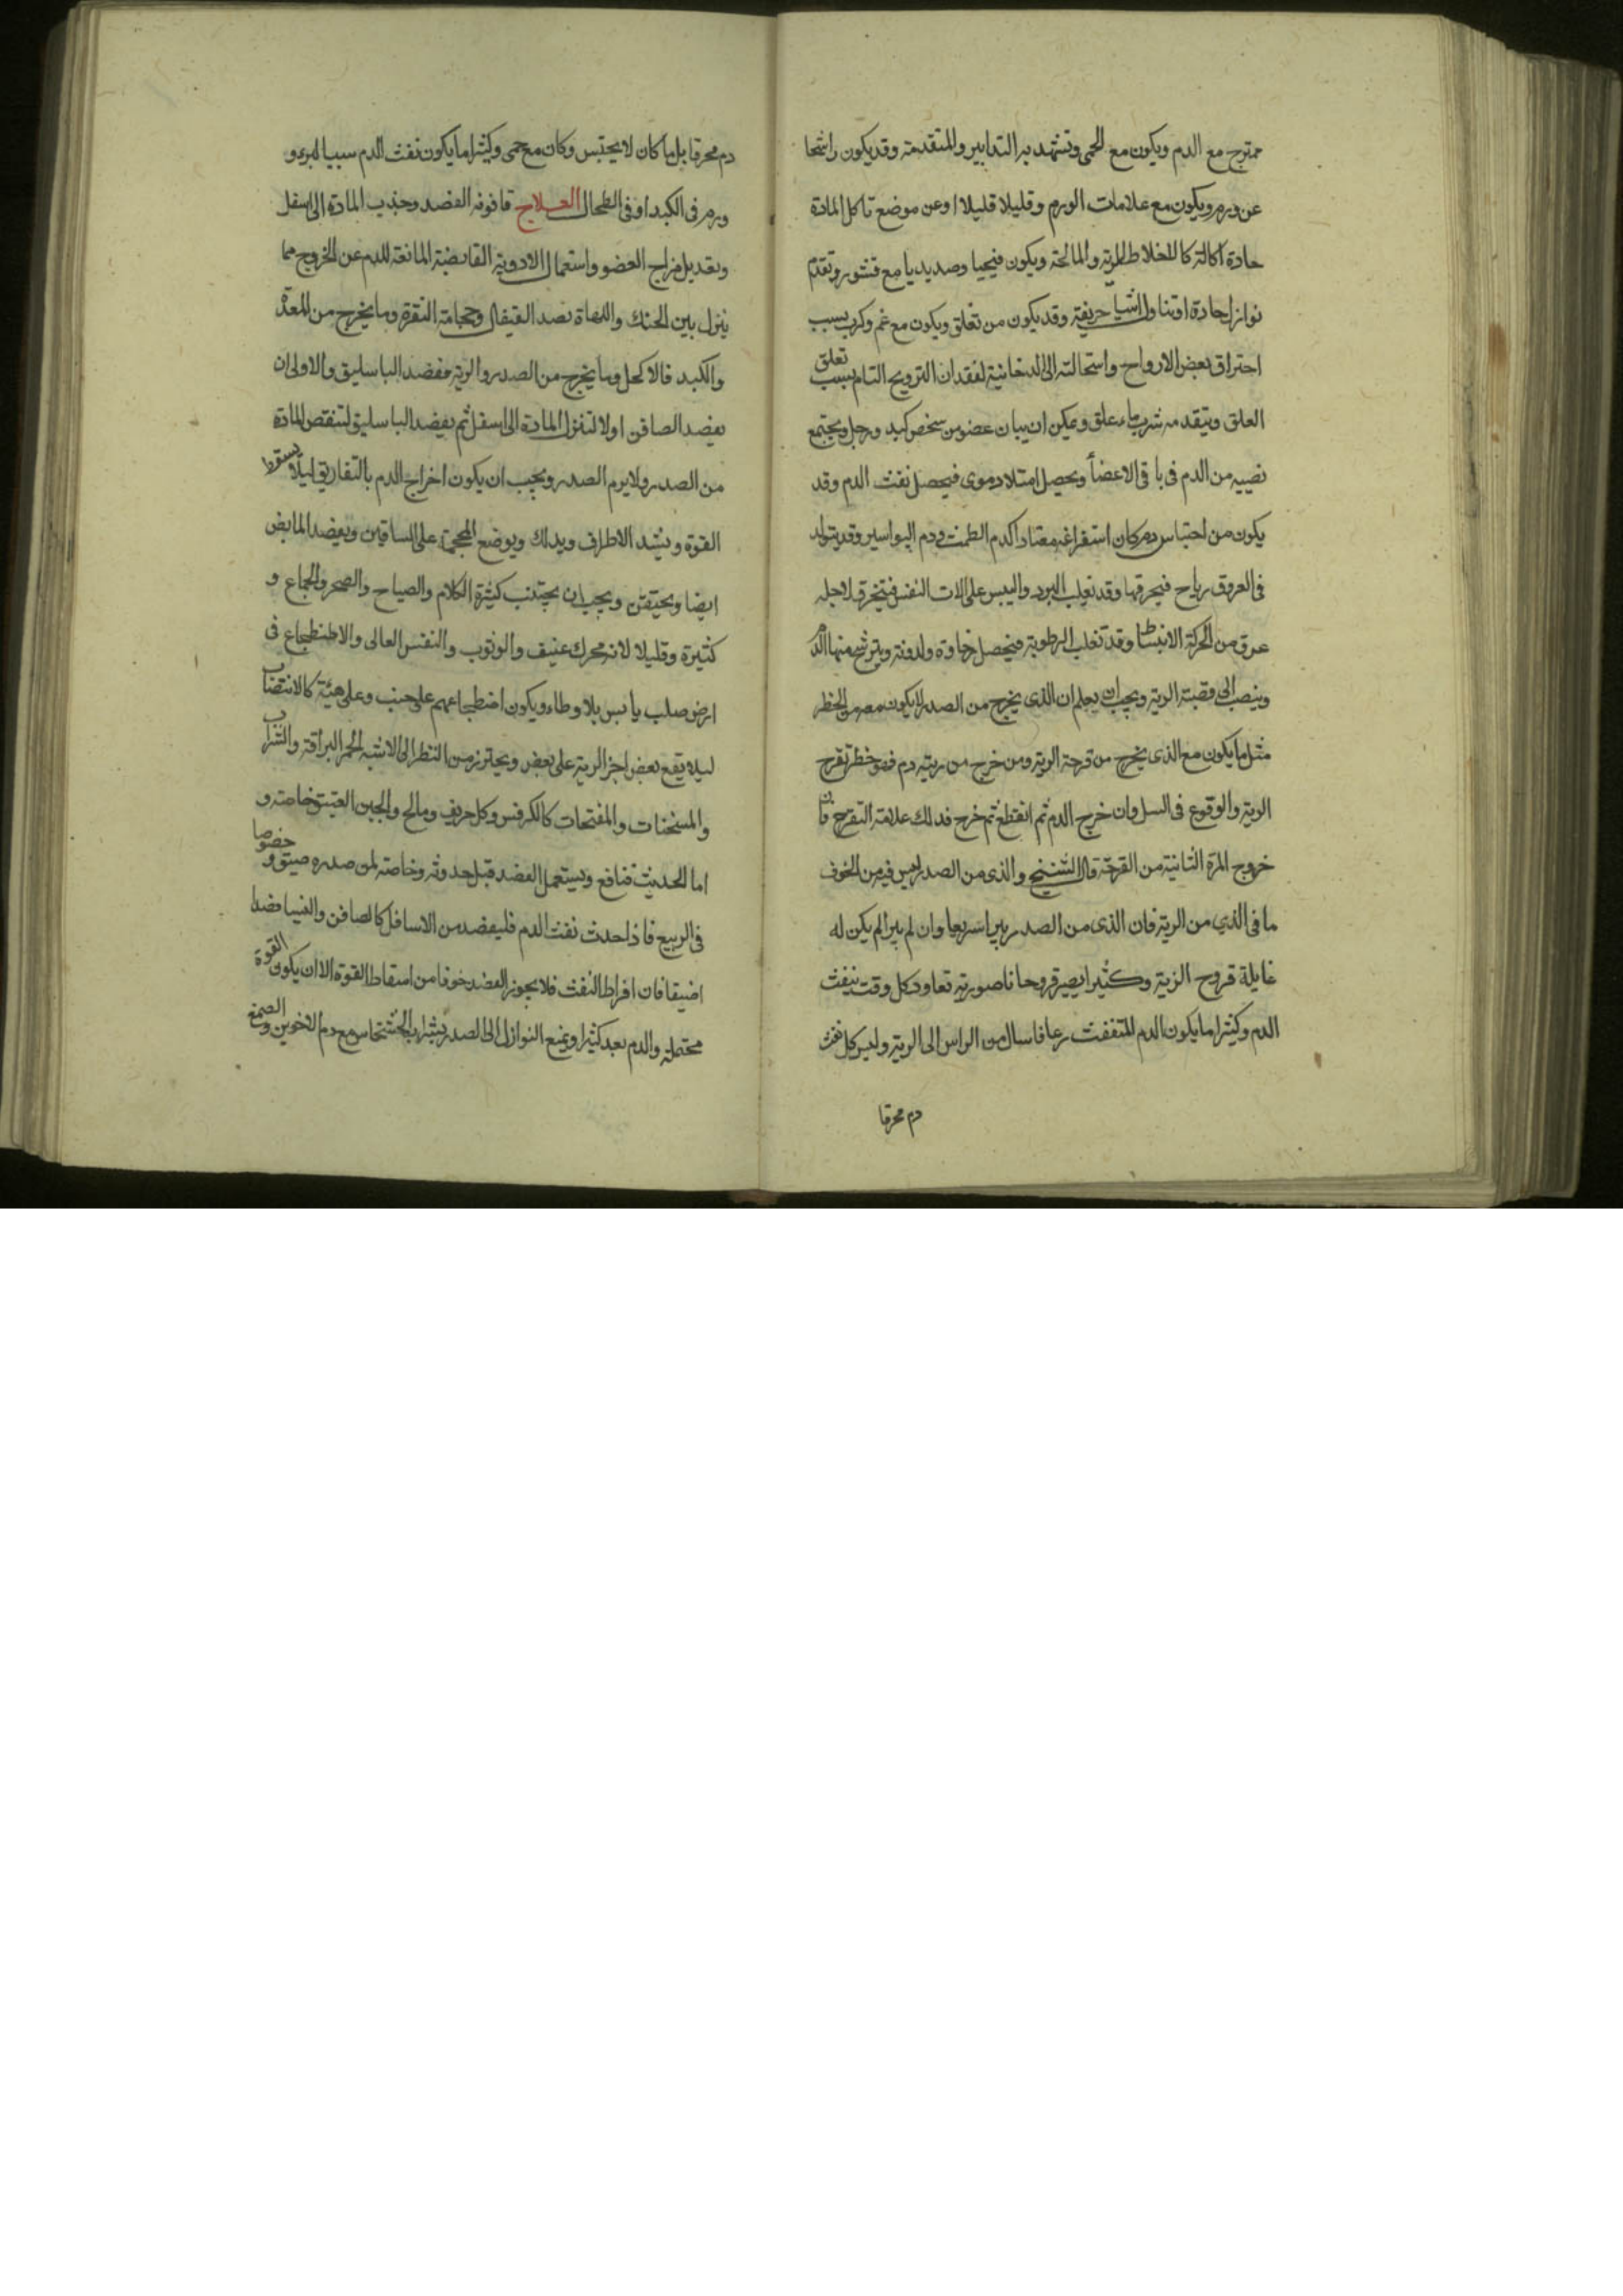 ممتزج مع الدم ويكون مع الحمى وتشهد به التدابير والمتقدمة وقد يكون راشحا
عن ورم ويكون مع علامات الورم وقليلا قليلا اوعن موضع تاكل المادة
حادة اكالة كالاخلاط المرية والمالحة ويكون قيحيا وصديديا مع قشور وتقدم
نوازل حادة اوتناول اشيا حريفة وقد يكون من تعلق ويكون مع غم وكرب بسبب
احتراق بعض الارواح واستحالته الى الدخانية لفقدان الترويح التام بسبب تعلق
العلق ويتقدمه شرب ماء علق ويمكن ان يبان عضو من شخص كيد ورجل ويجتمع
نصيبه من الدم فى باقى الاعضأ ويحصل امتلا دموى فيحصل نفث الدم وقد
يكون من احتباس دم كان استفراغه معتادا كدم الطمث ودم البواسير وقد يتولد
فى العروق رياح فيحرقها وقد تغلب البرد واليبس على الات النفس فتنخرق لاجله
عرق من الحركة الانبساط وقد تغلب الرطوبة فيحصل رخاوة ولدونة ويترشح منها الدم
وينصب الى قصبة الرية ويجب ان يعلم ان الذى يخرج من الصدر لا يكون معه من الخطر
مثل ما يكون مع الذى يخرج من قرحة الرية ومن خرج من ريته دم فهو خطر تقرح
الرية والوقوع فى السل وان خرج الدم ثم انقطع ثم خرج فذلك علامة التقرح فان
خروج المرة الثانية من القرحة قال الشيخ والذى من الصدر ليس فيه من الخوف
ما فى الذي من الرية فان الذى من الصدر يبرا سريعا وان لم يبرا لم يكن له
غايلة قروح الرية وكثيرا يصير قروحا ناصورية تعاود كل وقت بنفث
الدم وكثيرا ما يكون الدم المتنفث رعافا سال من الراس الى الرية وليس كل نفث
دم محرقا
دم محرقا بل ما كان لا يحتبس وكان مع حمى وكثيرا ما يكون نفث الدم سببا لبرء و
ورم فى الكبد او فى الطحال العلاج قانونه الفصد وجذب المادة الى اسفل
وتعديل مزاج العضو واستعمال الادوية القابضة المانعة للدم عن الخروج مما
ينزل بين الحنك واللهاة فصد القيفال وحجامة النقرة وما يخرج من المعدة
والكبد فالاكحل وما يخرج من الصدر والرية ففصد الباسليق والاولى ان
يفصد الصافن اولا لتنزل المادة الى اسفل ثم يفصد الباسليق لتنقص المادة
من الصدر ولا يرم الصدر ويجب ان يكون اخراج الدم بالتفاريق ليلا يسقط
القوة ويشد الاطراف ويدلك ويوضع المحجمة على الساقين ويفصد المابض
ايضا ويحتقن ويجب ان يجتنب كثرة الكلام والصياح والضجر والجماع و
كثيرة وقليلا لانه محرك عنيف والوثوب والنفس العالى والاضطجاع فى
ارض صلب يابس بلا وطاء ويكون اضطجاعهم على جنب وعلى هيئة كالانتصاب
ليلا يقع بعض اجز الرية على بعض ويحترز من النظر الى الاشيه الحمر البراقة والشراب
والمسخنات والمفتحات كالكرفس وكل حريف ومالح والجبن العتيق خاصة و
اما الحديث فنافع ويستعمل الفصد قبل حدوثه وخاصة لمن صدره ضيق و خصوصا
فى الربيع فاذا حدث نفث الدم فليفصد من الاسافل كالصافن والنسيا فصدا
اضيقا فان افراط النفث فلا يجوز الفصد خوفا من اسقاط القوة الا ان يكون القوة
محتملة والدم بعد كثيرا ويمنع النوازل الى الصدر بشراب الخشخاش مع دم الاخوين والصمغ